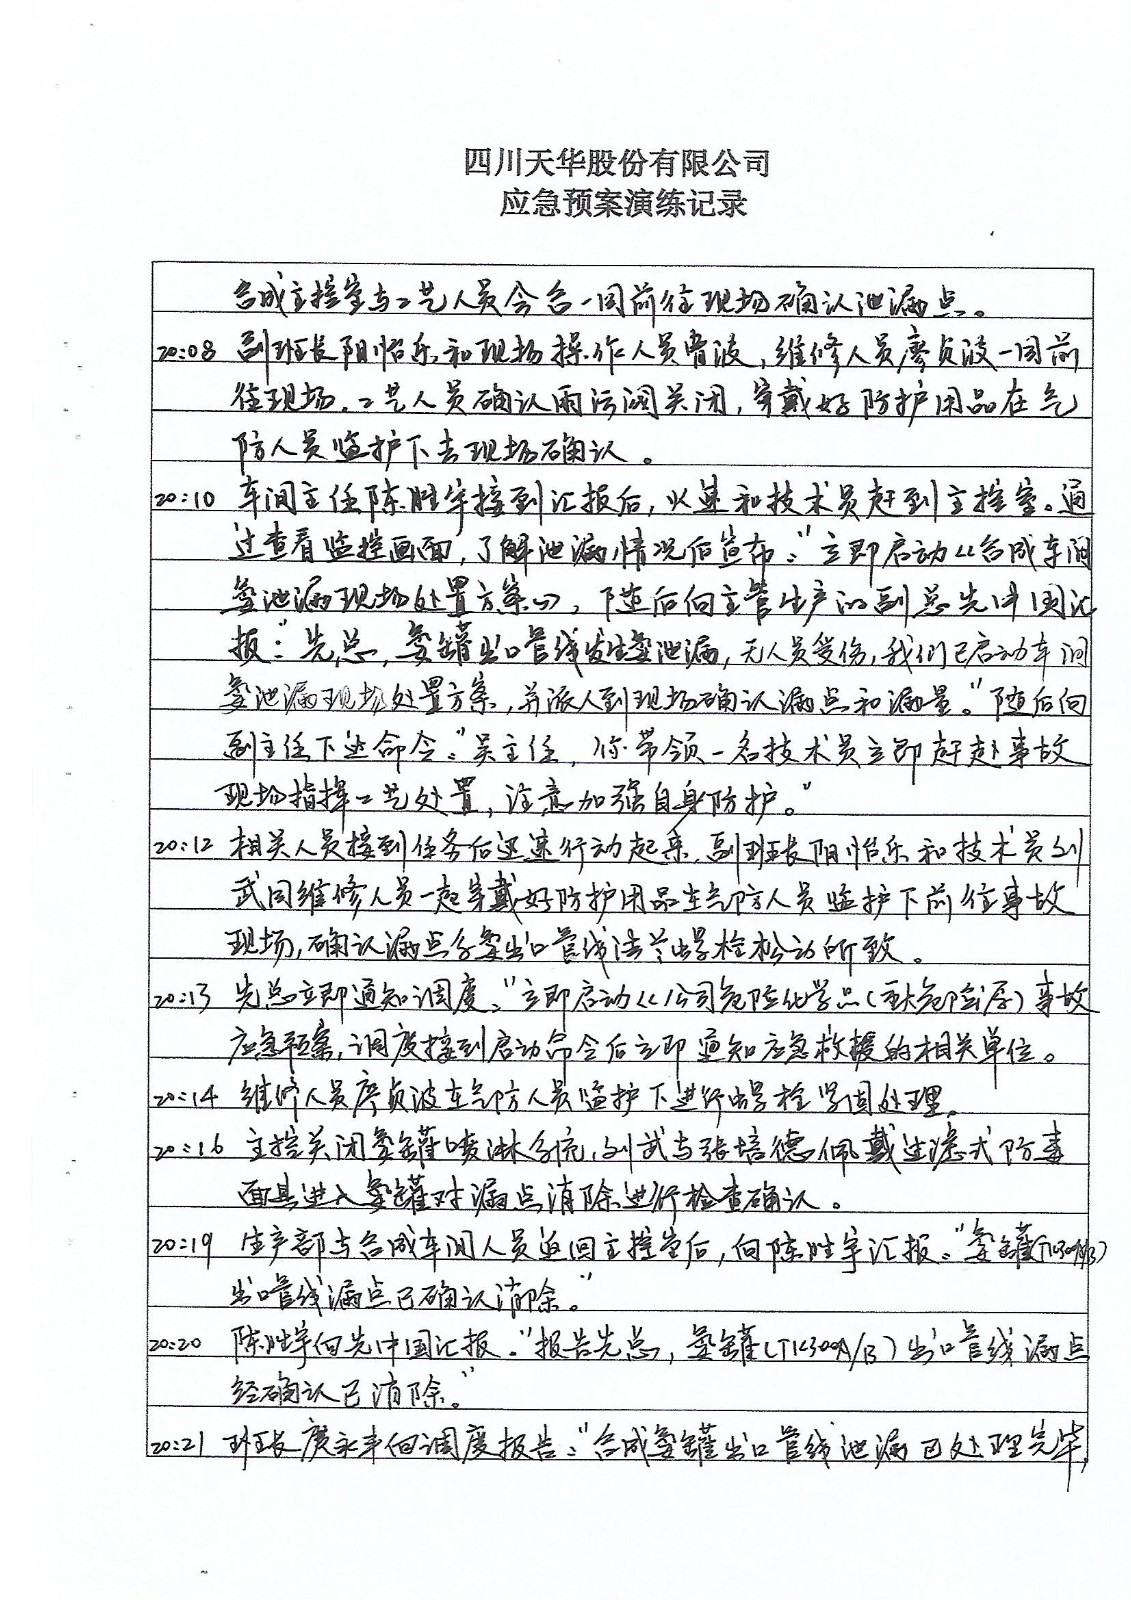 四川天华股份有限公司
应急预案演练记录
合成主控室与工艺人员会合一同前往现场确认泄漏点。
20:08 副班长阴怡乐和现场操作人员曾波,维修人员廖贞波一同前
往现场,工艺人员确认雨污阀关闭,穿戴好防护用品在气
防人员监护下去现场确认。
20:10 车间主任陈胜宇接到汇报后,火速和技术员赶到主控室。通
过查看监控画面,了解泄漏情况后宣布:“立即启动《合成车间
氨泄漏现场处置方案》,随后向主管生产的副总先中国汇
报:“先总,氨罐出口管线发生氨泄漏,无人员受伤,我们已启动车间
氨泄漏现场处置方案,并派人到现场确认漏点和漏量。”随后向
副主任下达命令:“吴主任,你带领一名技术员立即赶赴事故
现场指挥工艺处置,注意加强自身防护。”
20:12 相关人员接到任务后迅速行动起来,副班长阴怡乐和技术员刘
武同维修人员一起穿戴好防护用品在气防人员监护下前往事故
现场,确认漏点系氨出口管线法兰螺栓松动所致。
20:13 先总立即通知调度:“立即启动《公司危险化学品(重大危险源)事故
应急预案,调度接到启动命令后立即通知应急救援的相关单位。
20:14 维修人员廖贞波在气防人员监护下进行螺栓紧固处理。
20:16 主控关闭氨罐喷淋系统,刘武与张培德佩戴过滤式防毒
面具进入氨罐对漏点消除进行检查确认。
20:19 生产部与合成车间人员返回主控室后,向陈胜宇汇报:“氨罐(T12300A/B)
出口管线漏点已确认消除。”
20:20 陈胜宇向先中国汇报:“报告先总,氨罐(T12300A/B)出口管线漏点
经确认已消除。”
20:21 班长廖永丰向调度报告:“合成氨罐出口管线泄漏已处理完毕,